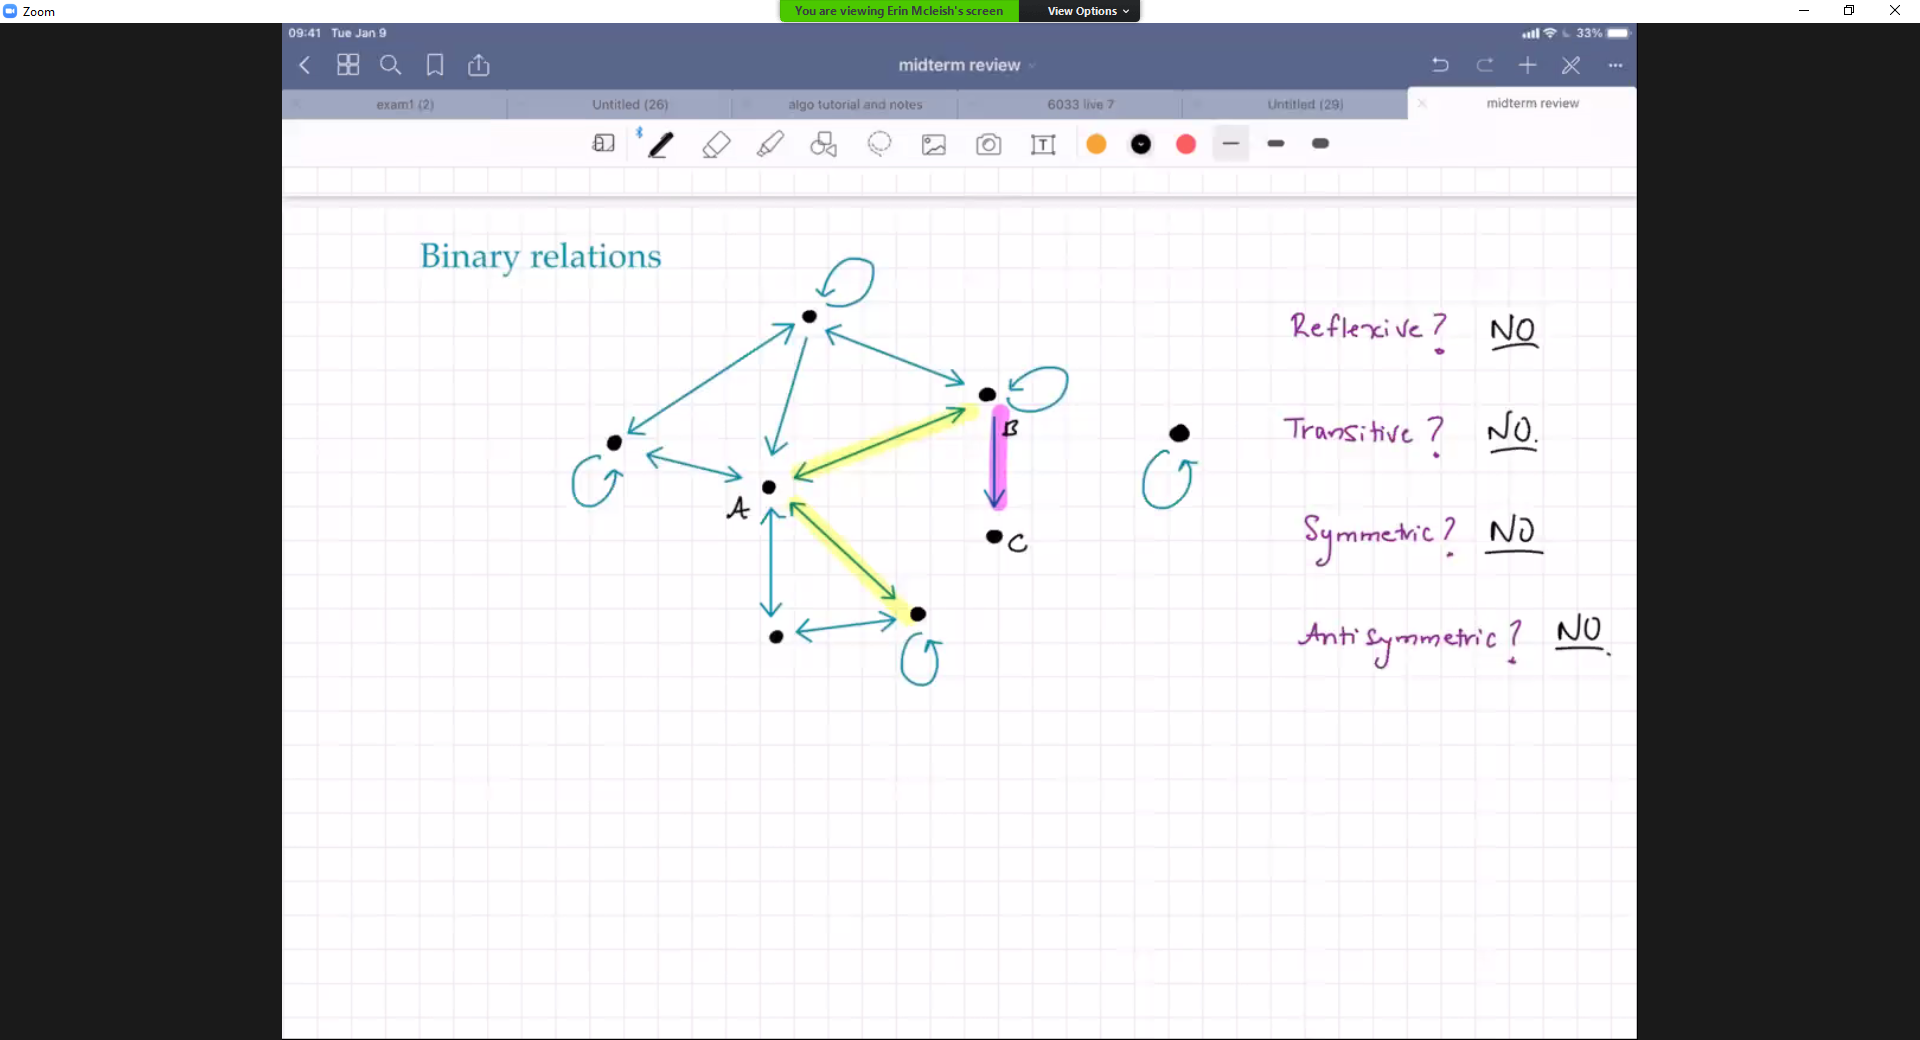 Zoom
You are viewing Erin Mcleish's screen
View Options
09:41 Tue Jan 9
33%
midterm review
exam1 (2)
Untitled (26)
algo tutorial and notes
6033 live 7
Untitled (29)
midterm review
T
Binary relations
Reflexive? NO
B
Transitive? NO.
A
Symmetric? NO
C
Antisymmetric? NO.